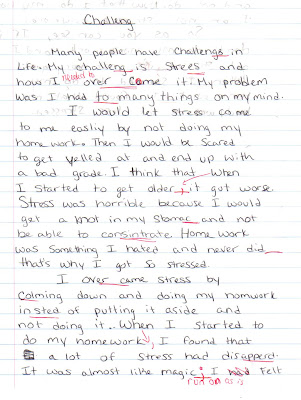 Challeng
Many people have Challengs in
Life. My challeng is Strees and
how I needed to over come it. My problem
was I had to many things on my mind.
I would let stress come
to me easliy by not doing my
home work. Then I would be Scared
to get yelled at and end up with
a bad grade. I think that when
I started to get older, it got worse.
Stress was horrible because I would
get a knot in my Stomac and not
be able to consintrate. Home work
was Something I hated and never did
that's why I got so stressed.
I over came stress by
Colming down and doing my homwork
insted of putting it aside and
not doing it. When I started to
do my homework, I found that
a lot of stress had disapperd.
It was almost like magic; I Felt
run on as is